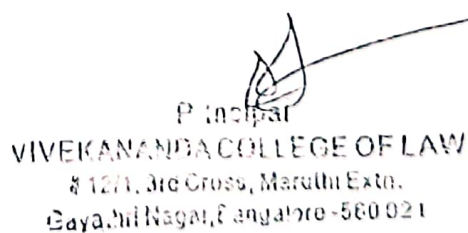 Principal
VIVEKANANDA COLLEGE OF LAW
# 12/1, 3rd Cross, Maruthi Extn.
Gayathri Nagar, Bangalore - 560 021